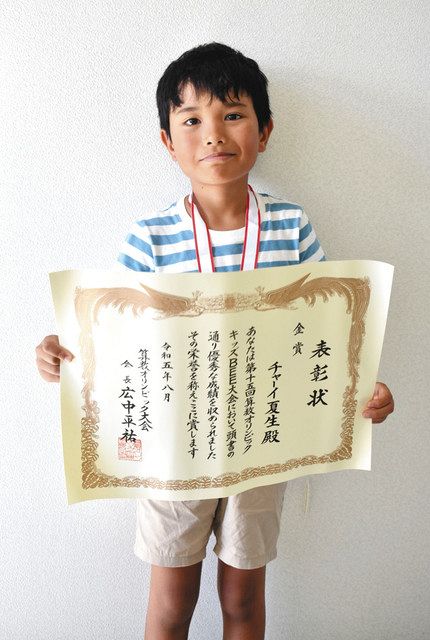 表彰状
金賞
チャーイ夏生殿
あなたは第十五回算数オリンピック
キッズBEE大会において頭書の
通り優秀な成績を収められました
その栄誉を称えここに賞します
令和五年八月
算数オリンピック大会
会長 広中平祐